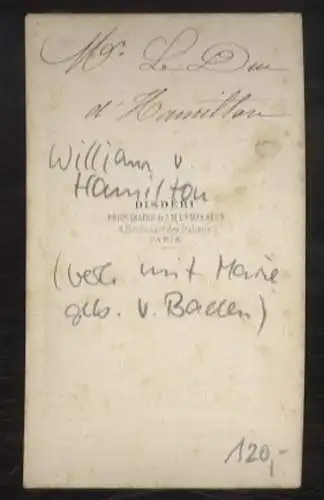 Mr. Le Duc
d'Hamilton
William v.
Hamilton
DISDERI
PHOTOGRAPHE DE S.M. L'EMPEREUR
8, Boulevart des Italiens
PARIS
(verh. mit Marie
geb. v. Baden)
120,-